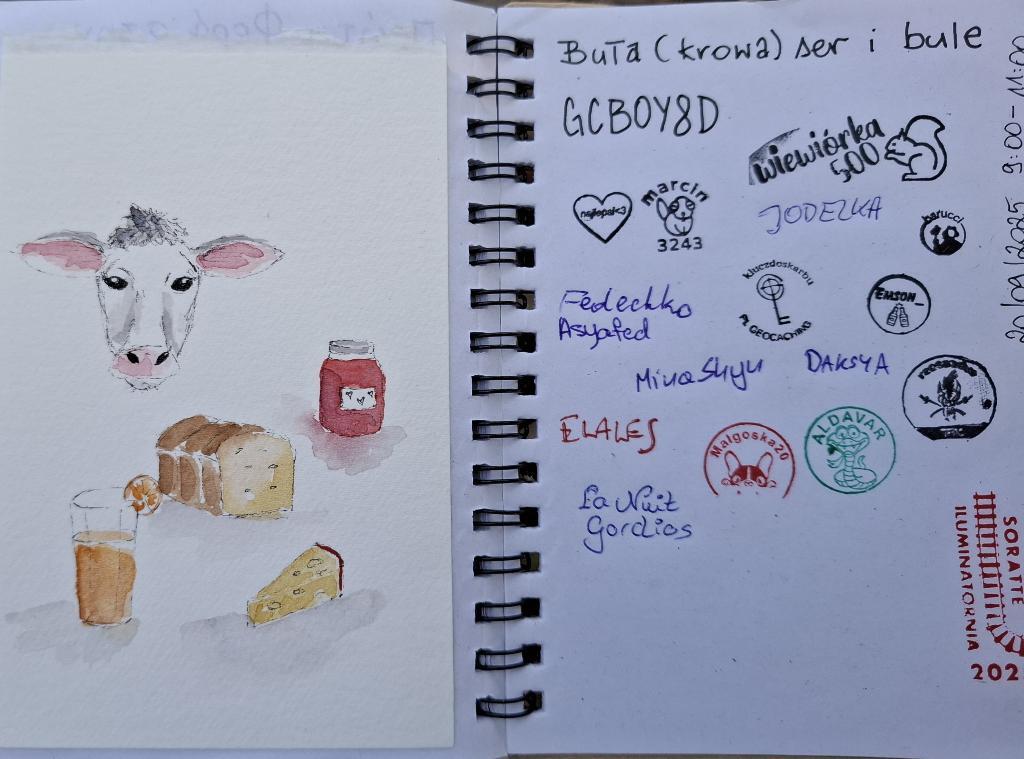 Buła (krowa) ser i bule
GCB0Y8D
wiewiórka
500
marcin
3243
JODEŁKA
barucci
Fedechko
Asyafed
kluczdoskarbu
PL GEOCACHING
EMSON_
MinaShyu
DAKSYA
ELALES
Malgoska20
ALDAVAR
La Nuit
Gordios
20/09/2025 9:00-11:00
SORATTE
ILUMINATORNIA
202